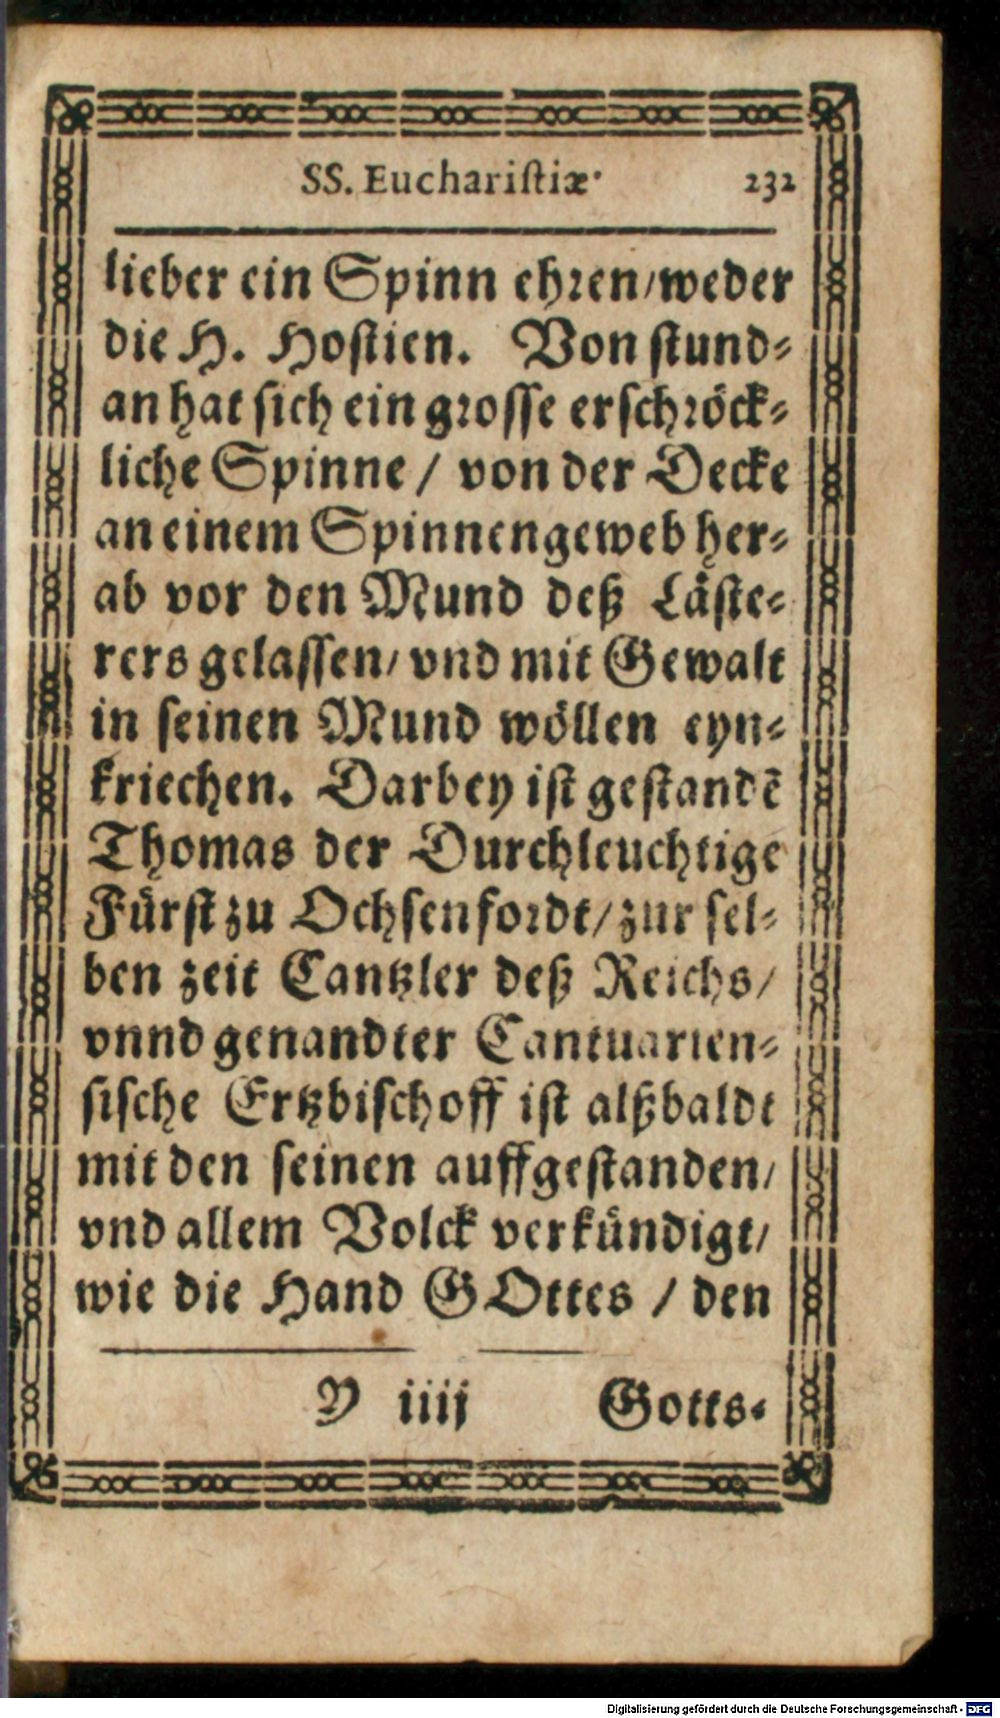 SS. Euchariſtiæ. 232
lieber ein Spinn ehꝛen/weder
die H. Hoſtien. Von ſtund⸗
an hat ſich ein gꝛoſſe erſchꝛöck⸗
liche Spinne / von der Decke
an einem Spinnengeweb her⸗
ab vor den Mund deß Läſte⸗
rers gelaſſen/ vnd mit Gewalt
in ſeinen Mund wöllen eyn⸗
kriechen. Darbey iſt geſtandẽ
Thomas der Durchleuchtige
Fürſt zu Ochſenfoꝛdt/ zur ſel⸗
ben zeit Cantzler deß Reichs/
vnnd genandter Cantuarien⸗
ſiſche Ertzbiſchoff iſt alßbaldt
mit den ſeinen auffgeſtanden/
vnd allem Volck verkündigt/
wie die Hand GOttes / den
Y iiij Gotts⸗
Digitalisierung gefördert durch die Deutsche Forschungsgemeinschaft - DFG